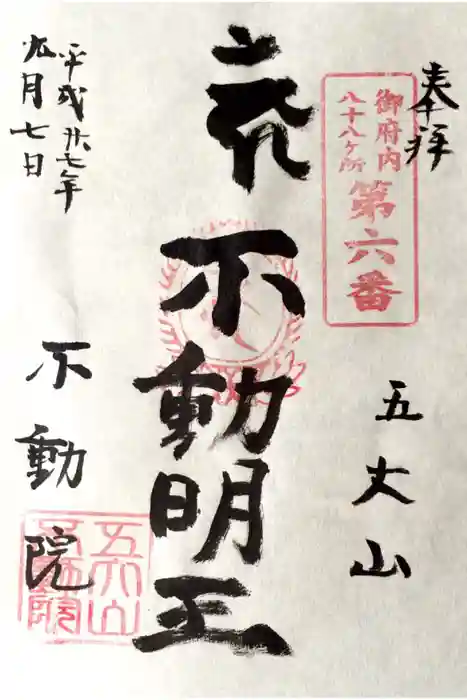 奉拝
御府内
八十八ヶ所
第六番
五大山
不動明王
平成廿七年
九月七日
不動院
五大山
不動院